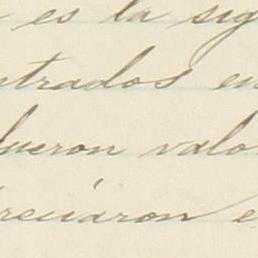 es la sig
ntrados en
fueron valo
reciaron e